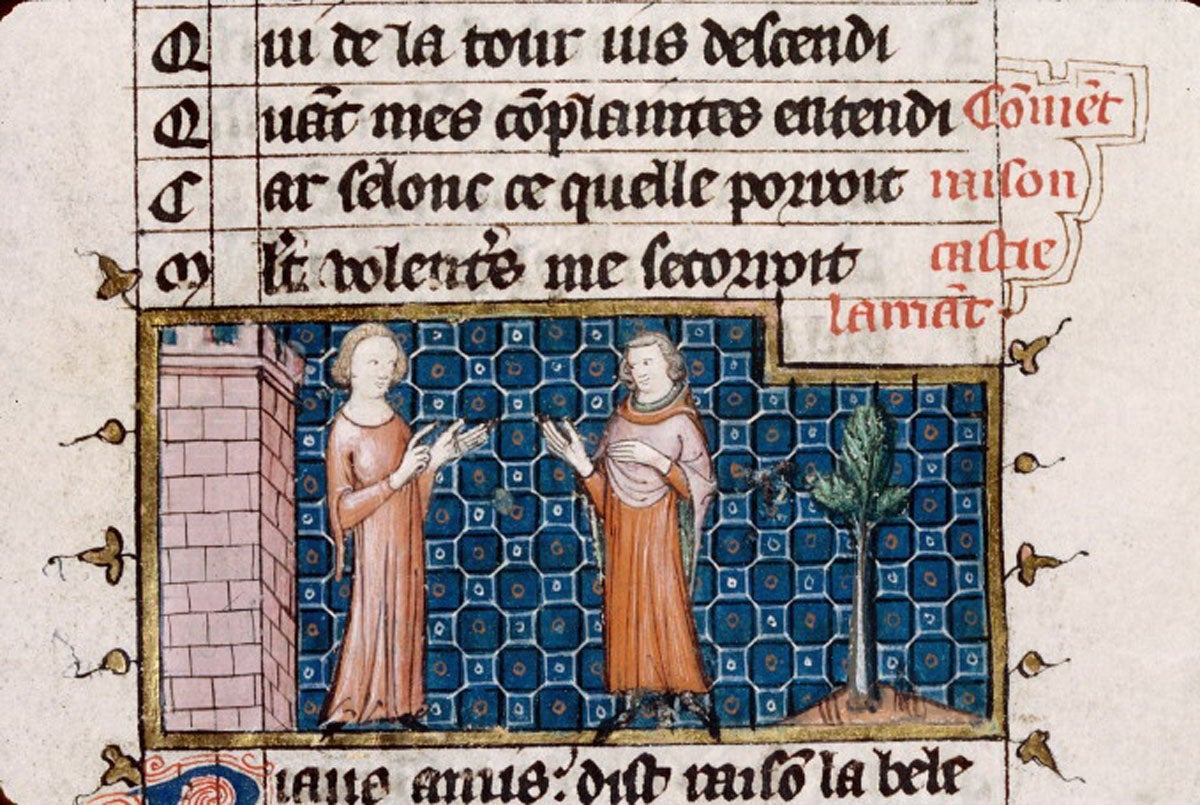 Qui de la tour ius descendi
Quāt mes cōplaintes entendi
Car selonc ce quelle porroit
Ml't volent's me secorroit
Cōmēt
raison
castie
lamāt
Biaus amis: dist raisō la bele